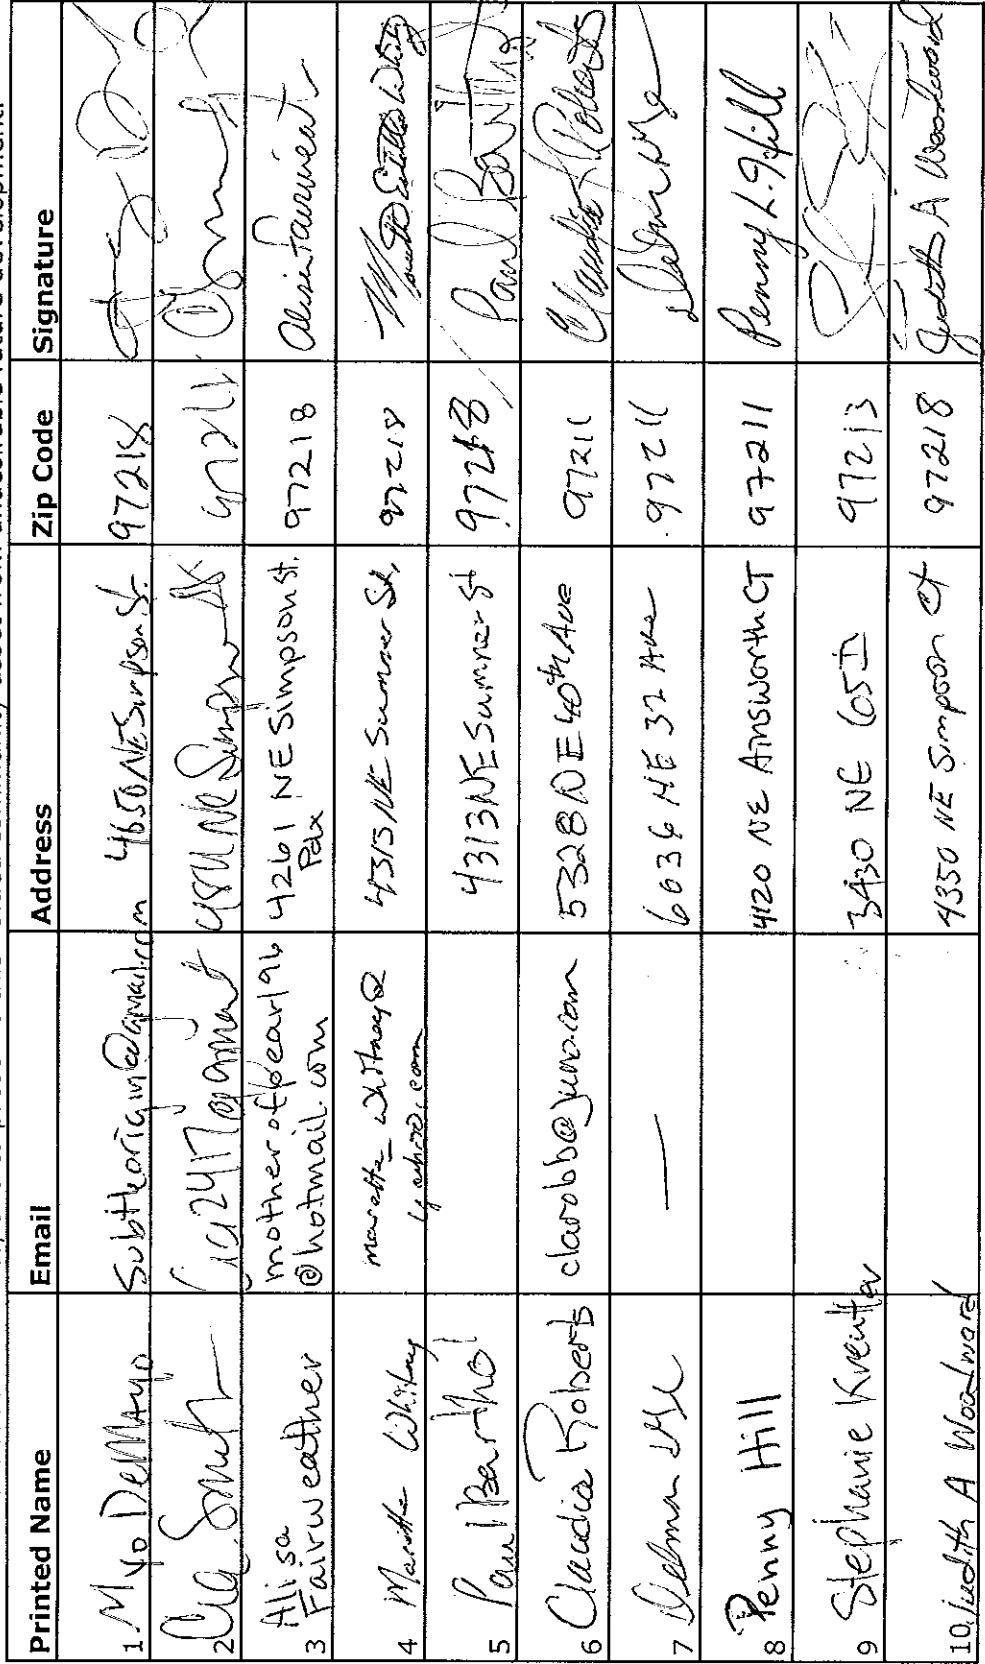 Printed Name Email Address Zip Code Signature
1 Myo DeMayo subtheorigin@gmail.com 4650 NE Simpson St. 97218
2 Smith NE Simpson
3 Alisa Fairweather motherofpearl96 4261 NE Simpson st. 97218 Alisa Fairweather
@hotmail.com Pdx
4 Marotta Whitney 4313 NE Sumner St. 97218
yahoo.com
5 Paul Barthol 4313 NE Sumner St 97218 Paul Barthol
6 Claudia Roberts clarobb@juno.com 5328 NE 40th Ave 97211 Claudia Roberts
7 Delman — 6036 NE 32 Ave 97211
8 Penny Hill 4120 NE Ainsworth CT 97211 Penny L. Hill
9 Stephanie 3430 NE 65th 97213
10. Judith A Woodward 4350 NE Simpson Ct 97218 Judith A Woodward